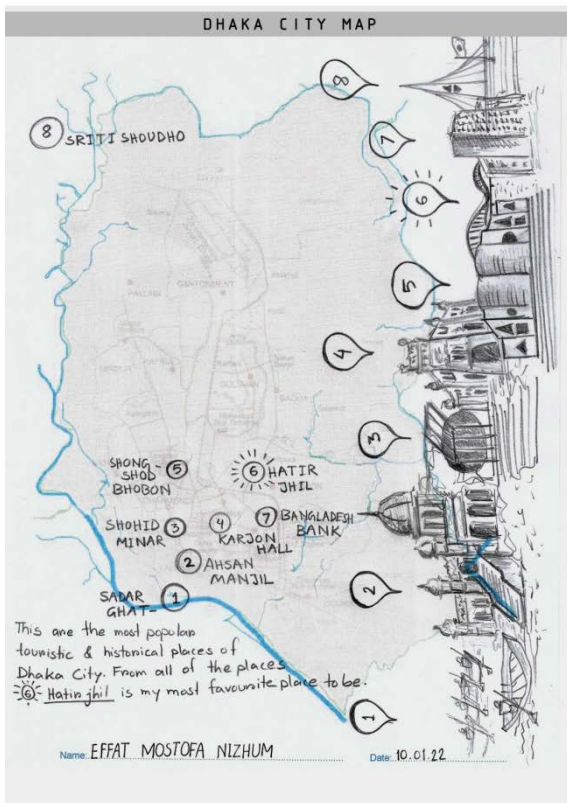 DHAKA CITY MAP
8
8 SRITI SHOUDHO
7
6
CANTONMENT
PALLABI
5
4
GULSHAN
3
SHONG-
SHOD 5
BHOBON
6 HATIR
JHIL
SHOHID
MINAR 3
4 KARJON
HALL
7 BANGLADESH
BANK
2 AHSAN
MANJIL
2
SADAR
GHAT- 1
This are the most popular
touristic & historical places of
Dhaka City. From all of the places
6 Hatirjhil is my most favourite place to be.
1
Name: EFFAT MOSTOFA NIZHUM
Date: 10.01.22